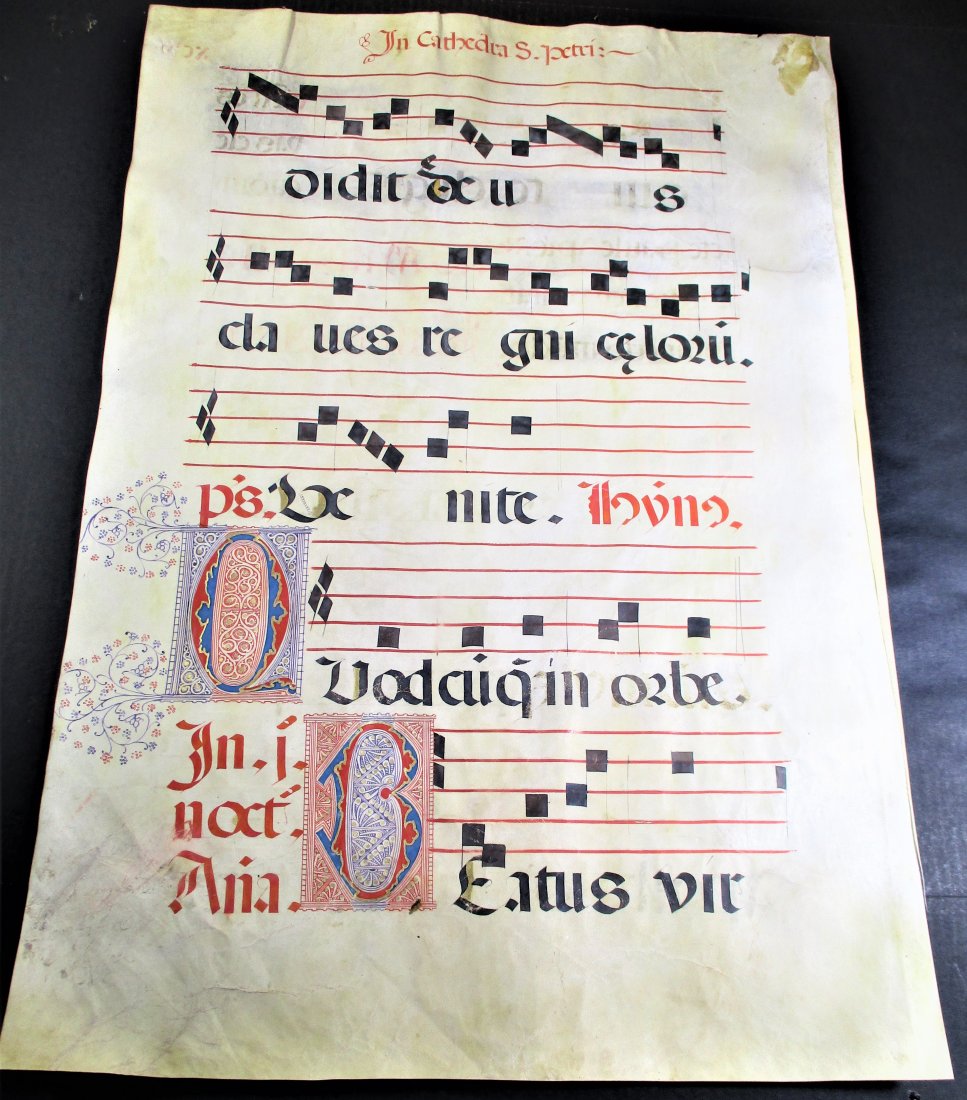 In Cathedra S. petri:~
didit de u s
cla ues re gni cęlorū.
ps. Ve nite. Hỹnɔ.
QVodcūq̃ in orbe.
In. j.
noct.
Aña. BEatus vir